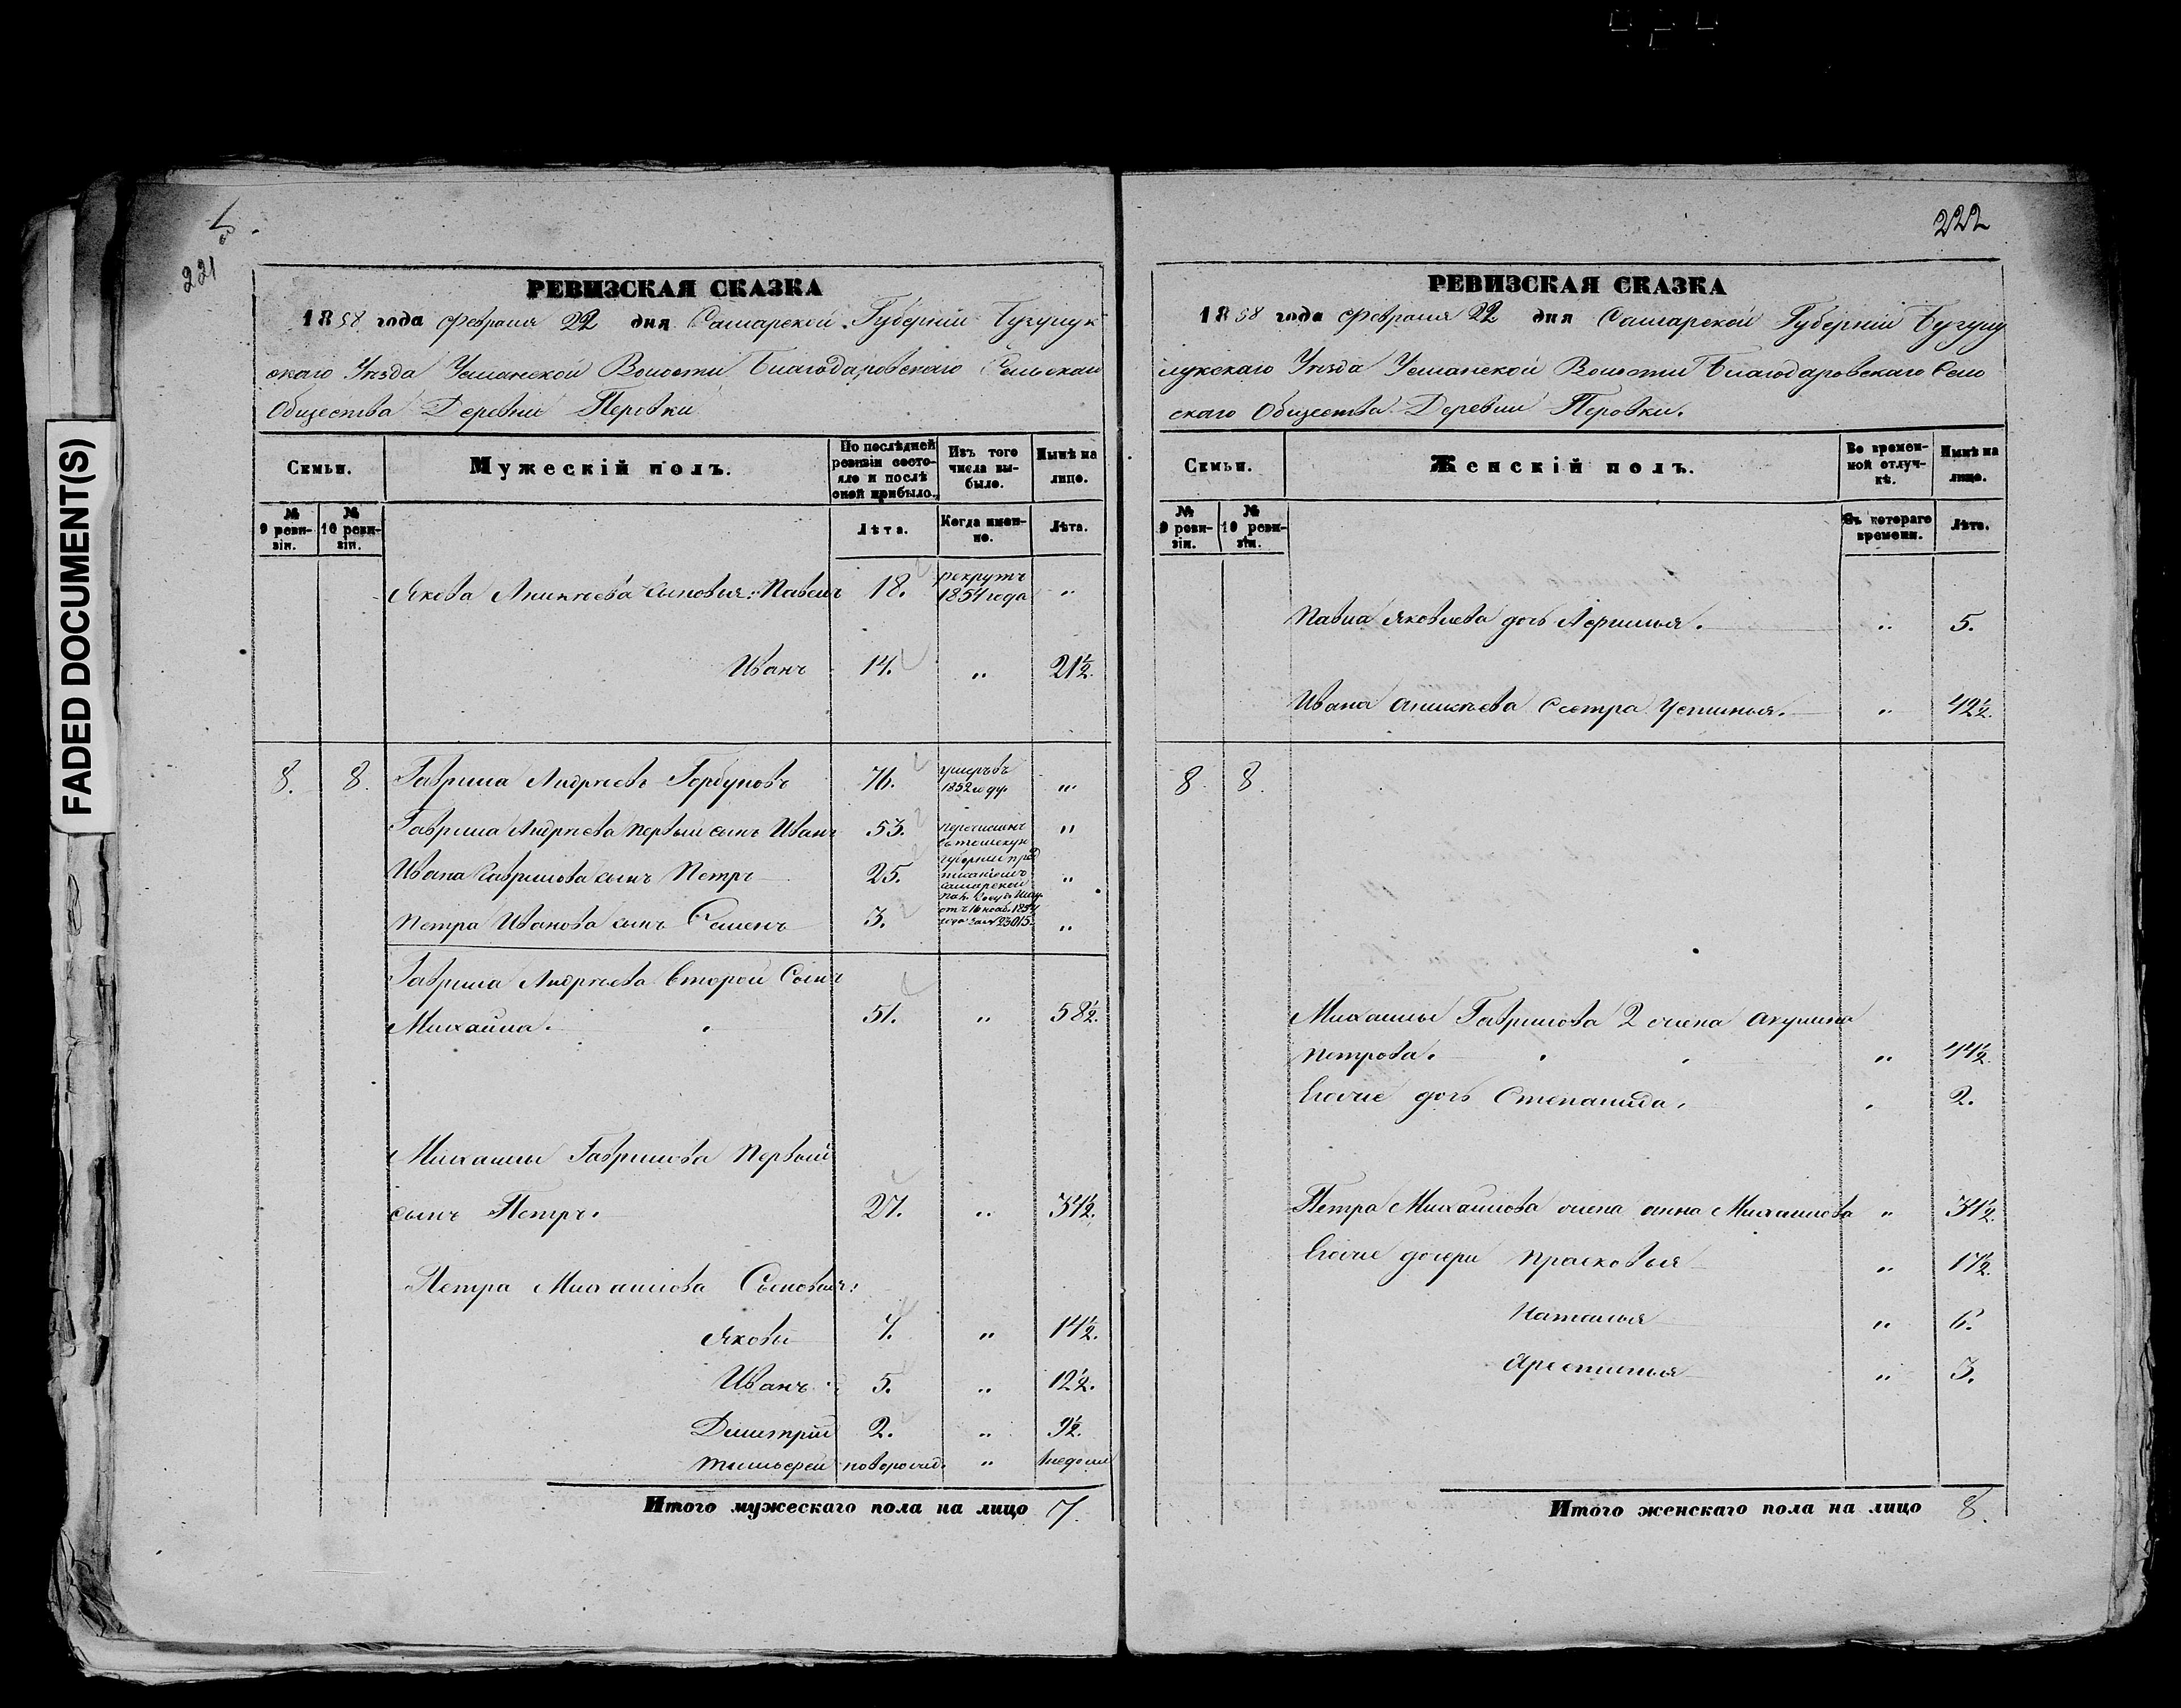 FADED DOCUMENT(S)
221
РЕВИЗСКАЯ СКАЗКА
1858 года Февраля 22 дня Самарской Губерніи Бугурук
скаго Уѣзда Усманской Волости Благодаровскаго Сельскаго
Общества Деревни Перовки
Семьи.
Мужескій полъ.
По послѣдней ревизіи состояло и послѣ оной прибыло.
Изъ того числа выбыло.
Нынѣ на лицо.
№ 9 ревизіи.
№ 10 ревизіи.
Лѣта.
Когда именно.
Лѣта.
Якова Аникѣева сыновья: Павелъ 18. рекрутъ 1854 года "
Иванъ 14. " 21½.
8. 8. Гаврила Андреевъ Горбуновъ 76. умеръ въ 1852 году. "
Гаврила Андреева первый сынъ Иванъ 53. перечисленъ "
Ивана Гаврилова сынъ Петръ 25. губерніи "
Петра Иванова сынъ Семенъ 3. "
Самарской
Гаврила Андреева второй Сынъ
Михайла. 51. " 58½.
Михаилы Гаврилова Первый
сынъ Петръ. 27. " 34½.
Петра Михаилова Сыновья:
Яковъ 7. " 14½.
Иванъ 5. " 12½.
Димитрій 2. " 9½.
новорожд. "
Итого мужескаго пола на лицо 7.
222
РЕВИЗСКАЯ СКАЗКА
1858 года Февраля 22 дня Самарской Губерніи Бугуру
лукскаго Уѣзда Усманской Волости Благодаровскаго Сель
скаго Общества Деревни Перовки.
Семьи.
Женскій полъ.
Во временной отлучкѣ.
Нынѣ на лицо.
№ 9 ревизіи.
№ 10 ревизіи.
Съ котораго времени.
Лѣта.
Павла Яковлева дочь " 5.
Ивана Аникѣева Сестра Устинья. " 42½.
8. 8.
Михаилы Гаврилова 2 жена Акулина
Петрова. " 44½.
Егоже дочь Степанида. " 2.
Петра Михаилова жена Анна Михаилова " 31½.
Егоже дочери Прасковья " 17½.
Наталья " 6.
" 3.
Итого женскаго пола на лицо 8.